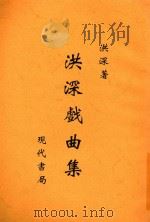 洪深著
洪深戲曲集
現代書局